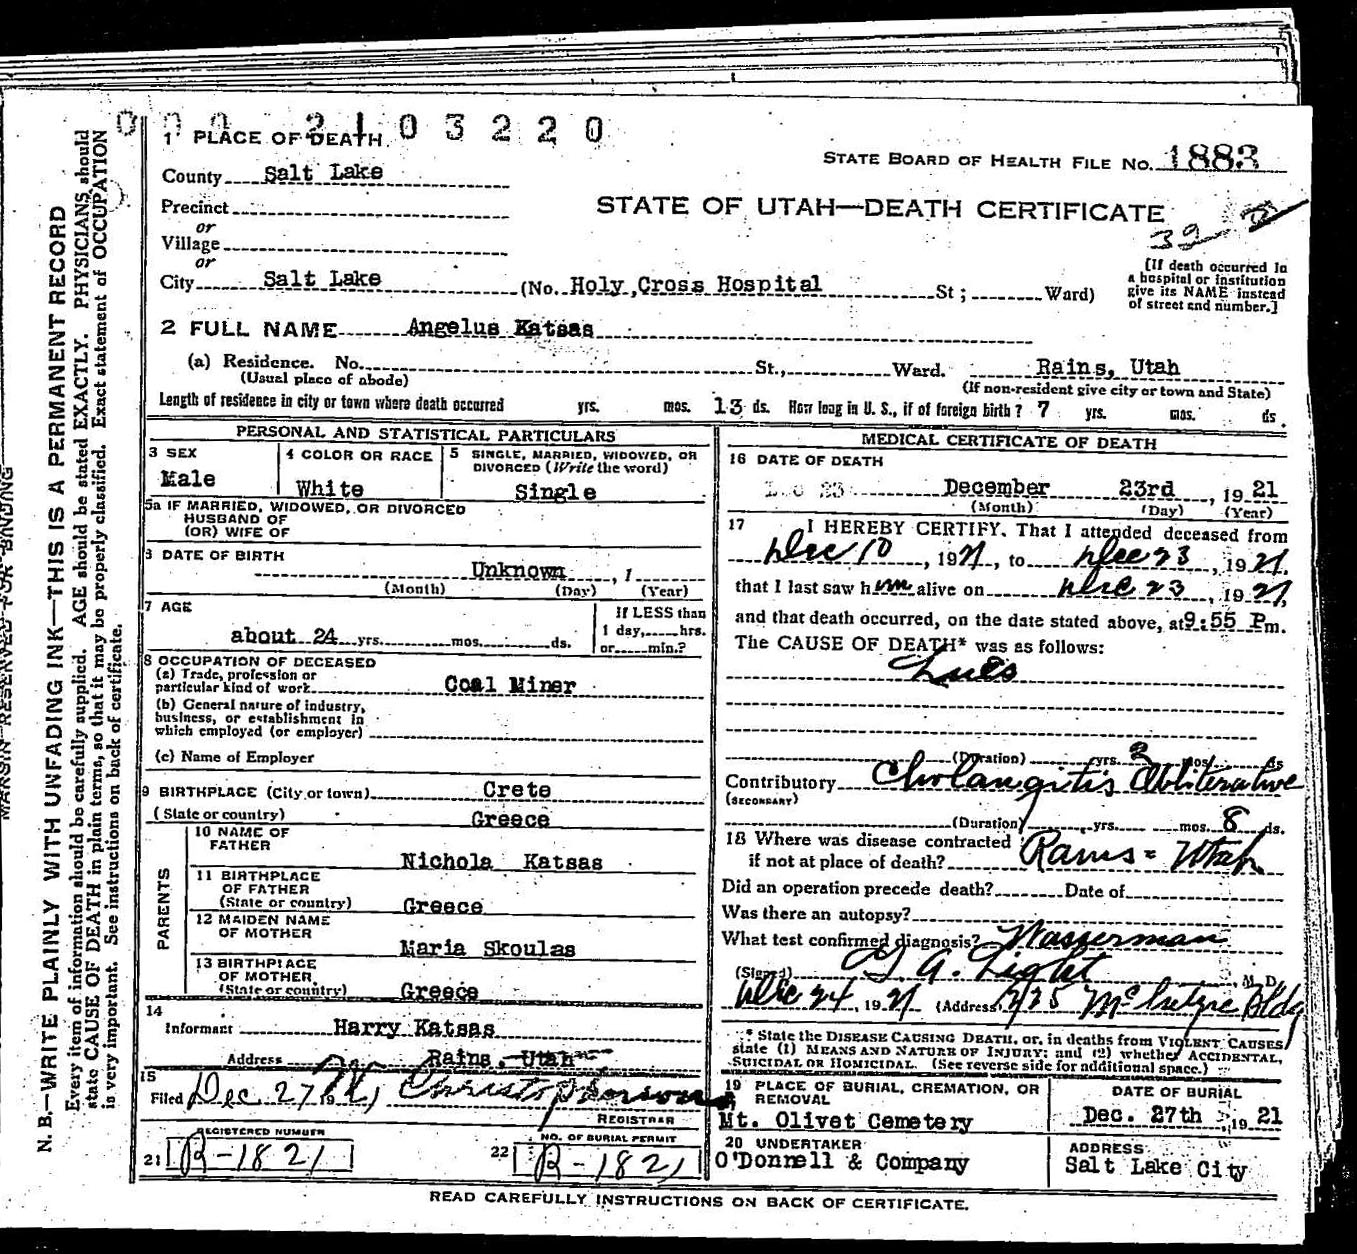 0 0 0 2 1 0 3 2 2 0
1 PLACE OF DEATH
STATE BOARD OF HEALTH FILE NO. 1883
County Salt Lake
Precinct
STATE OF UTAH—DEATH CERTIFICATE
or
Village
32
or
City Salt Lake (No. Holy Cross Hospital St; Ward)
[If death occurred in
a hospital or institution
give its NAME instead
of street and number.]
2 FULL NAME Angelus Katsas
(a) Residence. No. St., Ward. Rains, Utah
(Usual place of abode) (If non-resident give city or town and State)
Length of residence in city or town where death occurred yrs. mos. 13 ds. How long in U. S., if of foreign birth? 7 yrs. mos. ds.
PERSONAL AND STATISTICAL PARTICULARS
3 SEX
Male
4 COLOR OR RACE
White
5 SINGLE, MARRIED, WIDOWED, OR
DIVORCED (Write the word)
Single
5a IF MARRIED, WIDOWED, OR DIVORCED
HUSBAND OF
(OR) WIFE OF
6 DATE OF BIRTH
Unknown , 1
(Month) (Day) (Year)
7 AGE
about 24 yrs. mos. ds.
If LESS than
1 day, hrs.
or min.?
8 OCCUPATION OF DECEASED
(a) Trade, profession or
particular kind of work Coal Miner
(b) General nature of industry,
business, or establishment in
which employed (or employer)
(c) Name of Employer
9 BIRTHPLACE (City or town) Crete
(State or country) Greece
PARENTS
10 NAME OF
FATHER
Nichola Katsas
11 BIRTHPLACE
OF FATHER
(State or country) Greece
12 MAIDEN NAME
OF MOTHER
Maria Skoulas
13 BIRTHPLACE
OF MOTHER
(State or country) Greece
14
Informant Harry Katsas
Address Rains, Utah
15
Filed Dec 27
REGISTRAR
REGISTERED NUMBER
21 R-1821
NO. OF BURIAL PERMIT
22 R-1821
MEDICAL CERTIFICATE OF DEATH
16 DATE OF DEATH
Dec 23 December 23rd , 1921
(Month) (Day) (Year)
17 I HEREBY CERTIFY, That I attended deceased from
Dec 10 , 1921, to Dec 23 , 1921,
that I last saw him alive on Dec 23 , 1921,
and that death occurred, on the date stated above, at 9:55 P m.
The CAUSE OF DEATH* was as follows:
Lues
(Duration) yrs. mos. ds
Contributory Cholangitis Obliterative
(SECONDARY)
(Duration) yrs. mos. 8 ds.
18 Where was disease contracted
if not at place of death? Rains = Utah
Did an operation precede death? Date of
Was there an autopsy?
What test confirmed diagnosis? Wasserman
(Signed) G A. Light M. D.
Dec 24, 1921 (Address) 225 McIntyre Bldg
* State the DISEASE CAUSING DEATH, or, in deaths from VIOLENT CAUSES,
state (1) MEANS AND NATURE OF INJURY; and (2) whether ACCIDENTAL,
SUICIDAL OR HOMICIDAL. (See reverse side for additional space.)
19 PLACE OF BURIAL, CREMATION, OR
REMOVAL
Mt. Olivet Cemetery
DATE OF BURIAL
Dec. 27th 1921
20 UNDERTAKER
O'Donnell & Company
ADDRESS
Salt Lake City
READ CAREFULLY INSTRUCTIONS ON BACK OF CERTIFICATE.
MARGIN RESERVED FOR BINDING
N. B.—WRITE PLAINLY WITH UNFADING INK—THIS IS A PERMANENT RECORD
Every item of information should be carefully supplied. AGE should be stated EXACTLY. PHYSICIANS should
state CAUSE OF DEATH in plain terms, so that it may be properly classified. Exact statement of OCCUPATION
is very important. See instructions on back of certificate.